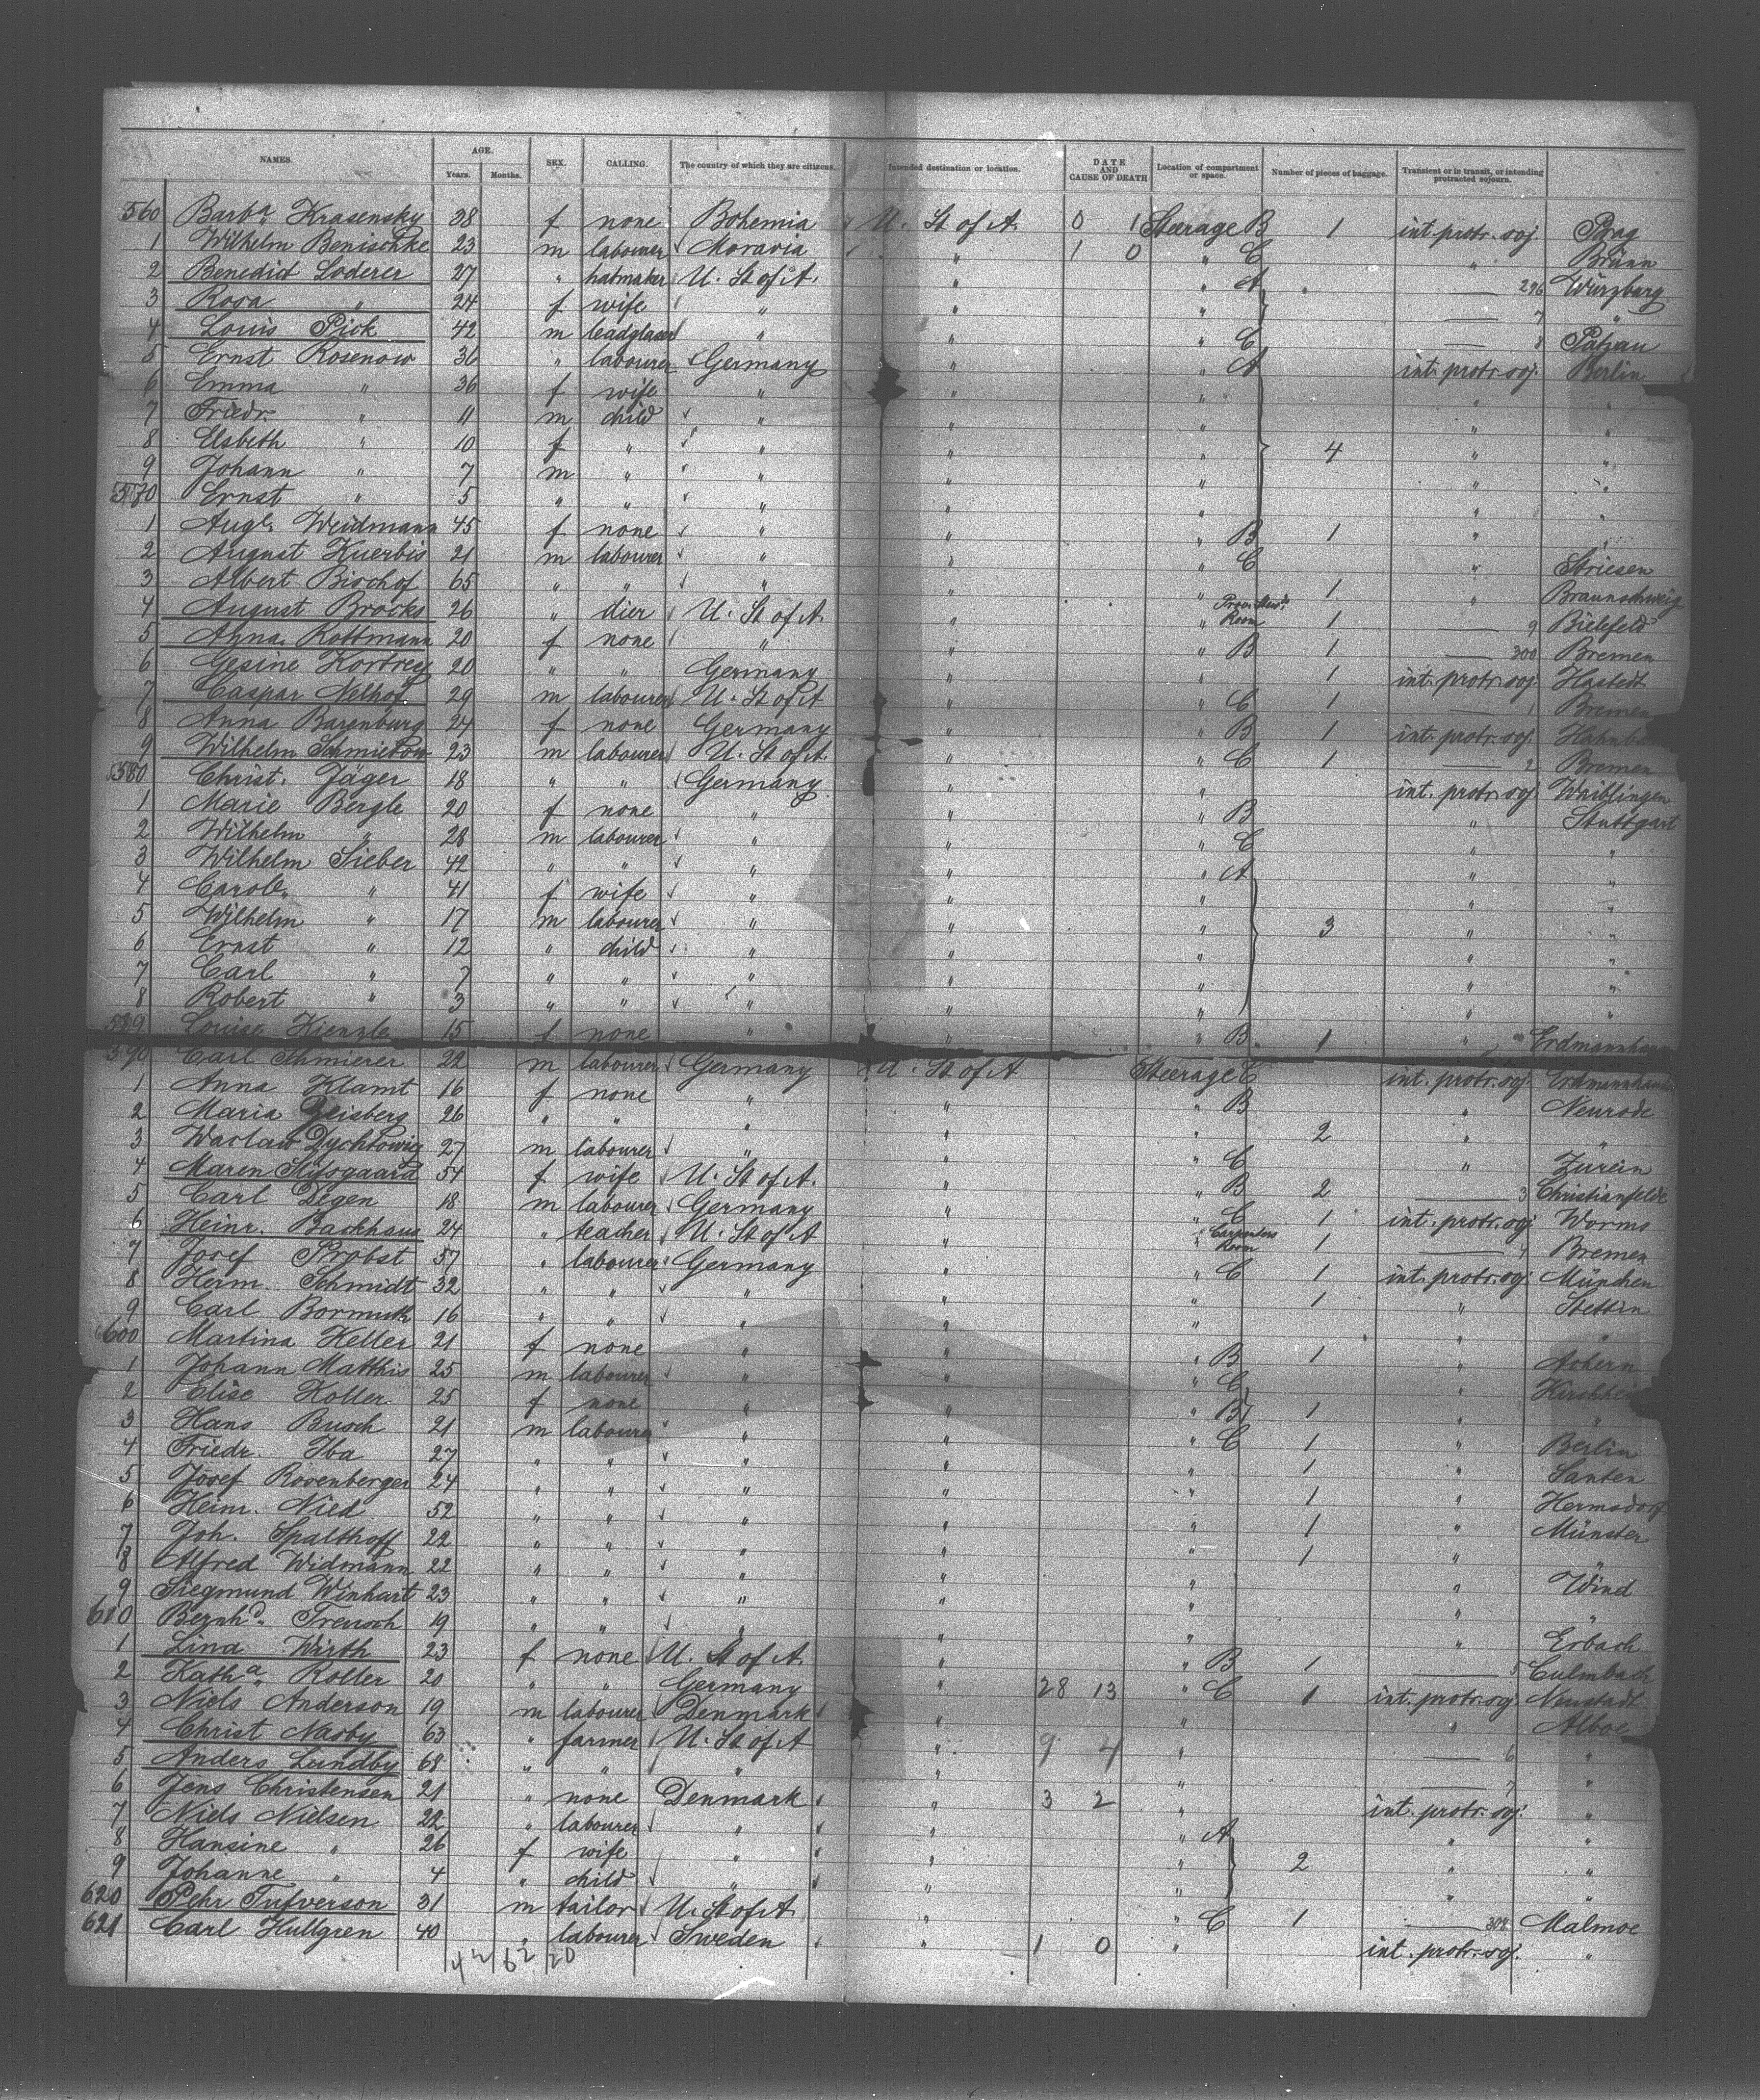 NAMES. AGE. Years. Months. SEX. CALLING. The country of which they are citizens. Intended destination or location. DATE AND CAUSE OF DEATH Location of compartment or space. Number of pieces of baggage. Transient or in transit, or intending protracted sojourn.
560 Barba Krasensky 28 f none Bohemia U. St of A. 0 1 Steerage B 1 int. protr. soj Prag
1 Wilhelm Benischke 23 m labourer Moravia " 1 0 " C " Brünn
2 Benedict Loderer 27 " hatmaker U. St of A. " " A 296 Würzburg
3 Rosa " 24 f wife " " " 7 "
4 Louis Pick 42 m " " " C 8 Patzau
5 Ernst Rosenow 36 " labourer Germany " " A int. protr. soj. Berlin
6 Emma " 36 f wife " " " " "
7 Friedr. " 11 m child " " " " "
8 Elsbeth " 10 f " " " " 4 " "
9 Johann " 7 m " " " " " "
570 Ernst " 5 " " " " " " "
1 Augte Weidmann 45 f none " " " B 1 " "
2 August Kuerbis 21 m labourer " " " C " Striesen
3 Albert Bischof 65 " " " " " 1 " Braunschweig
4 August Brocks 26 " dier U. St of A. " " Room 1 9 Bielefeld
5 Anna Rottmann 20 f none " " " B 1 300 Bremen
6 Gesine Kortrey 20 " " Germany " " 1 int. protr. soj. Hastedt
7 Caspar Nelhof 29 m labourer U. St of A " " C 1 1 Bremen
8 Anna Barenburg 24 f none Germany " " B 1 int. protr. soj.
9 Wilhelm Schmiedow 23 m labourer U. St of A. " " C 1 2 Bremen
580 Christ. Jäger 18 " " Germany " " int. protr. soj. Waiblingen
1 Marie Bergle 20 f none " " " B " Stuttgart
2 Wilhelm " 28 m labourer " " " C " "
3 Wilhelm Sieber 42 " " " " " A " "
4 Carole. " 41 f wife " " " " "
5 Wilhelm " 17 m labourer " " " 3 " "
6 Ernst " 12 " child " " " " "
7 Carl " 7 " " " " " " "
8 Robert " 3 " " " " " " "
589 Louise Kienzle 15 f none " " B 1 "
590 Carl Schmierer 22 m labourer Germany U. St of A Steerage C int. protr. soj. Erdmannhausen
1 Anna Klamt 16 f none " " " B " Neurode
2 Maria Geisberg 26 " " " " " 2 " "
3 Waclaw Dychtowicz 27 m labourer " " " C " Zürein
4 Maren Skifsgaard 54 f wife U. St of A. " " B 2 3 Christianfelde
5 Carl Degen 18 m labourer Germany " " C 1 int. protr. soj Worms
6 Heinr. Backhaus 24 " teacher U. St of A " " Carpenters Room 1 4 Bremen
7 Josef Probst 57 " labourer Germany " " C 1 int. protr. soj. München
8 Heinr. Schmidt 32 " " " " " 1 " Stettin
9 Carl Bormuth 16 " " " " " " "
600 Martina Keller 21 f none " " " B 1 " Achern
1 Johann Matthis 25 m labourer " " " C "
2 Elise Koller 25 f none " " " B 1 " "
3 Hans Busch 21 m labourer " " " C 1 " Berlin
4 Friedr. Iba 27 " " " " " 1 " Santen
5 Josef Rosenberger 24 " " " " " 1 " Hermsdorf
6 Heinr. Nied 52 " " " " " 1 " Münster
7 Joh. Spalthoff 22 " " " " " 1 " "
8 Alfred Widmann 22 " " " " " " Wind
9 Siegmund Winhart 23 " " " " " " "
610 Bernhd. Treusch 19 " " " " " " Erbach
1 Lina Wirth 23 f none U. St of A. " " B 1 5 Culmbach
2 Katha. Koller 20 " " Germany " 28 13 " C 1 int. protr. soj. Neustadt
3 Niels Anderson 19 m labourer Denmark " " " Alboe
4 Christ Nasby 63 " farmer U. St of A " 9 4 " 6 "
5 Anders Lundby 68 " " " " " 7 "
6 Jens Christensen 21 " none Denmark " 3 2 " int. protr. soj. "
7 Niels Nielsen 22 " labourer " " " A " "
8 Hansine " 26 f wife " " " 2 " "
9 Johanne " 4 " child " " " " "
620 Pehr Tufverson 31 m tailor U. St of A. " " C 1 308 Malmoe
621 Carl Hullgren 40 " labourer Sweden " 1 0 " int. protr. soj. "
42 62 20